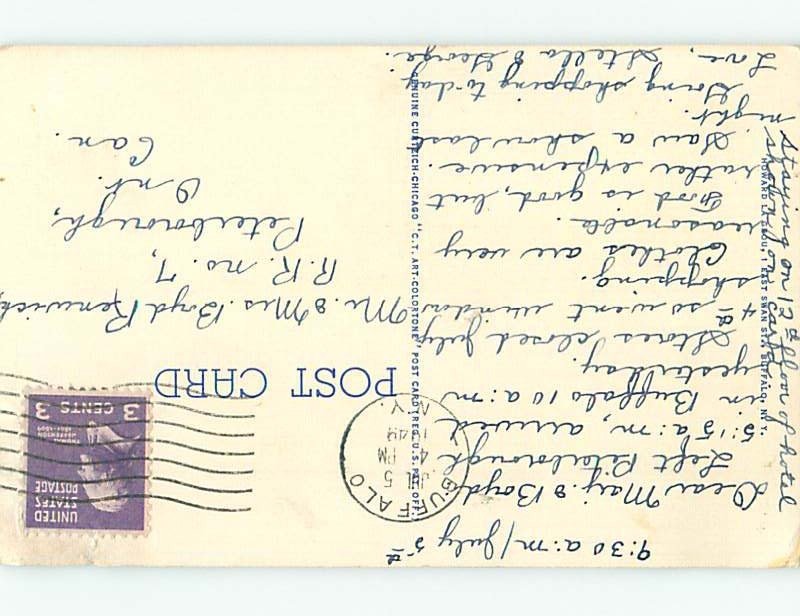 9:30 a.m/July 5th
Dear Marj. & Boyd
Left Peterborough
5:15 a.m, arrived
in Buffalo 10 a.m
yesterday.
Stores closed July
4th so went window
shopping.
Clothes are very
reasonable.
Food is good, but
rather expensive.
Saw a show last
night.
Going shopping to-day
Love, Stella & George.
Staying on 12th floor of hotel
shown on card
HOWARD A. 1 EAST SWAN ST., BUFFALO, N. Y.
GENUINE CURTEICH-CHICAGO "C. T. ART-COLORTONE" POST CARD (REG. U. S. PAT. OFF.)
BUFFALO
JUL 5
4 PM
1949
N.Y.
UNITED
STATES
POSTAGE
THOMAS
JEFFERSON
1801-1809
3 CENTS 3
POST CARD
Mr. & Mrs. Boyd Renwick,
R.R. no. 7,
Peterborough,
Ont.
Can.